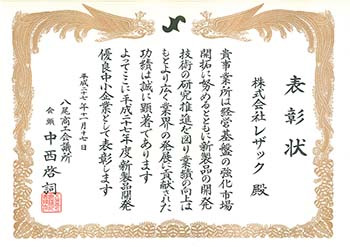 表彰状
株式会社レザック 殿
貴事業所は経営基盤の強化市場
開拓に努めるとともに新製品の開発
技術の研究推進を図り業績の向上は
もとより広く業界の発展に貢献された
功績は誠に顕著であります
よってここに平成二十七年度新製品開発
優良中小企業として表彰します
平成二十七年十一月十七日
八尾商工会議所
会頭 中西啓詞